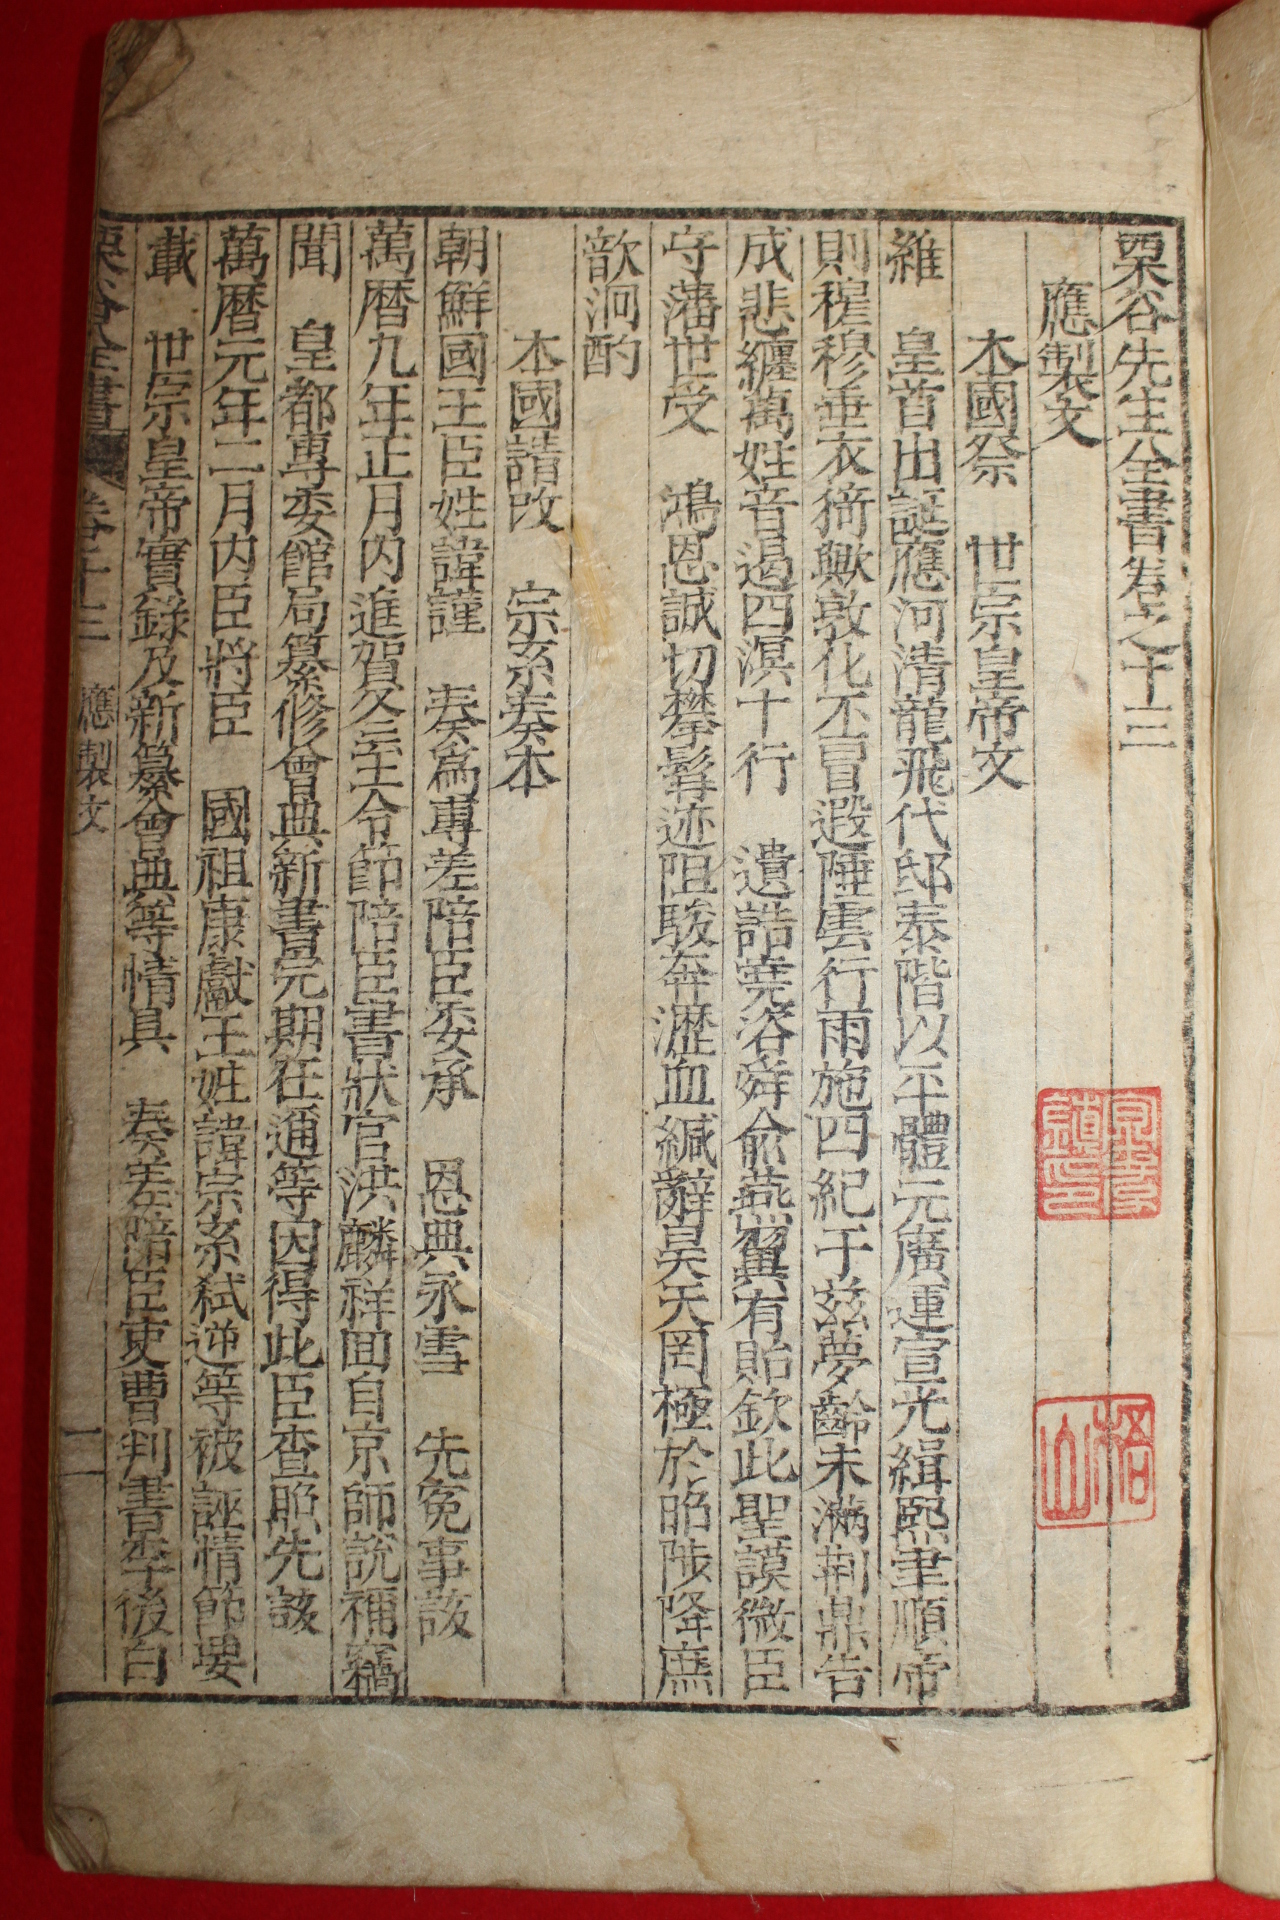 栗谷先生全書卷之十三
應製文
本國祭 世宗皇帝文
維 皇首出誕應河清龍飛代邸泰階以平體元廣運宣光緝熙聿順帝
則穆穆垂衣猗歟敦化丕冒遐陲雲行雨施四紀于玆夢齡未滿荊鼎告
成悲纏萬姓音遏四溟十行 遺誥堯咨舜俞燕翼有貽欽此聖謨微臣
守藩世受 鴻恩誠切攀髯迹阻駿奔瀝血緘辭昊天罔極於昭陟降庶
歆泂酌
本國請改 宗系奏本
朝鮮國王臣姓諱謹 奏爲專差陪臣委承 恩典永雪 先冤事該
萬曆九年正月內進賀冬至令節陪臣書狀官洪麟祥回自京師說稱竊
聞 皇都專委館局纂修會典新書完期在邇等因得此臣查照先該
萬曆元年二月內臣將臣 國祖康獻王姓諱宗系弑逆等被誣情節要
載 世宗皇帝實錄及新纂會典等情具 奏差陪臣吏曹判書李後白
栗谷全書 卷十三 應製文 二
梧山